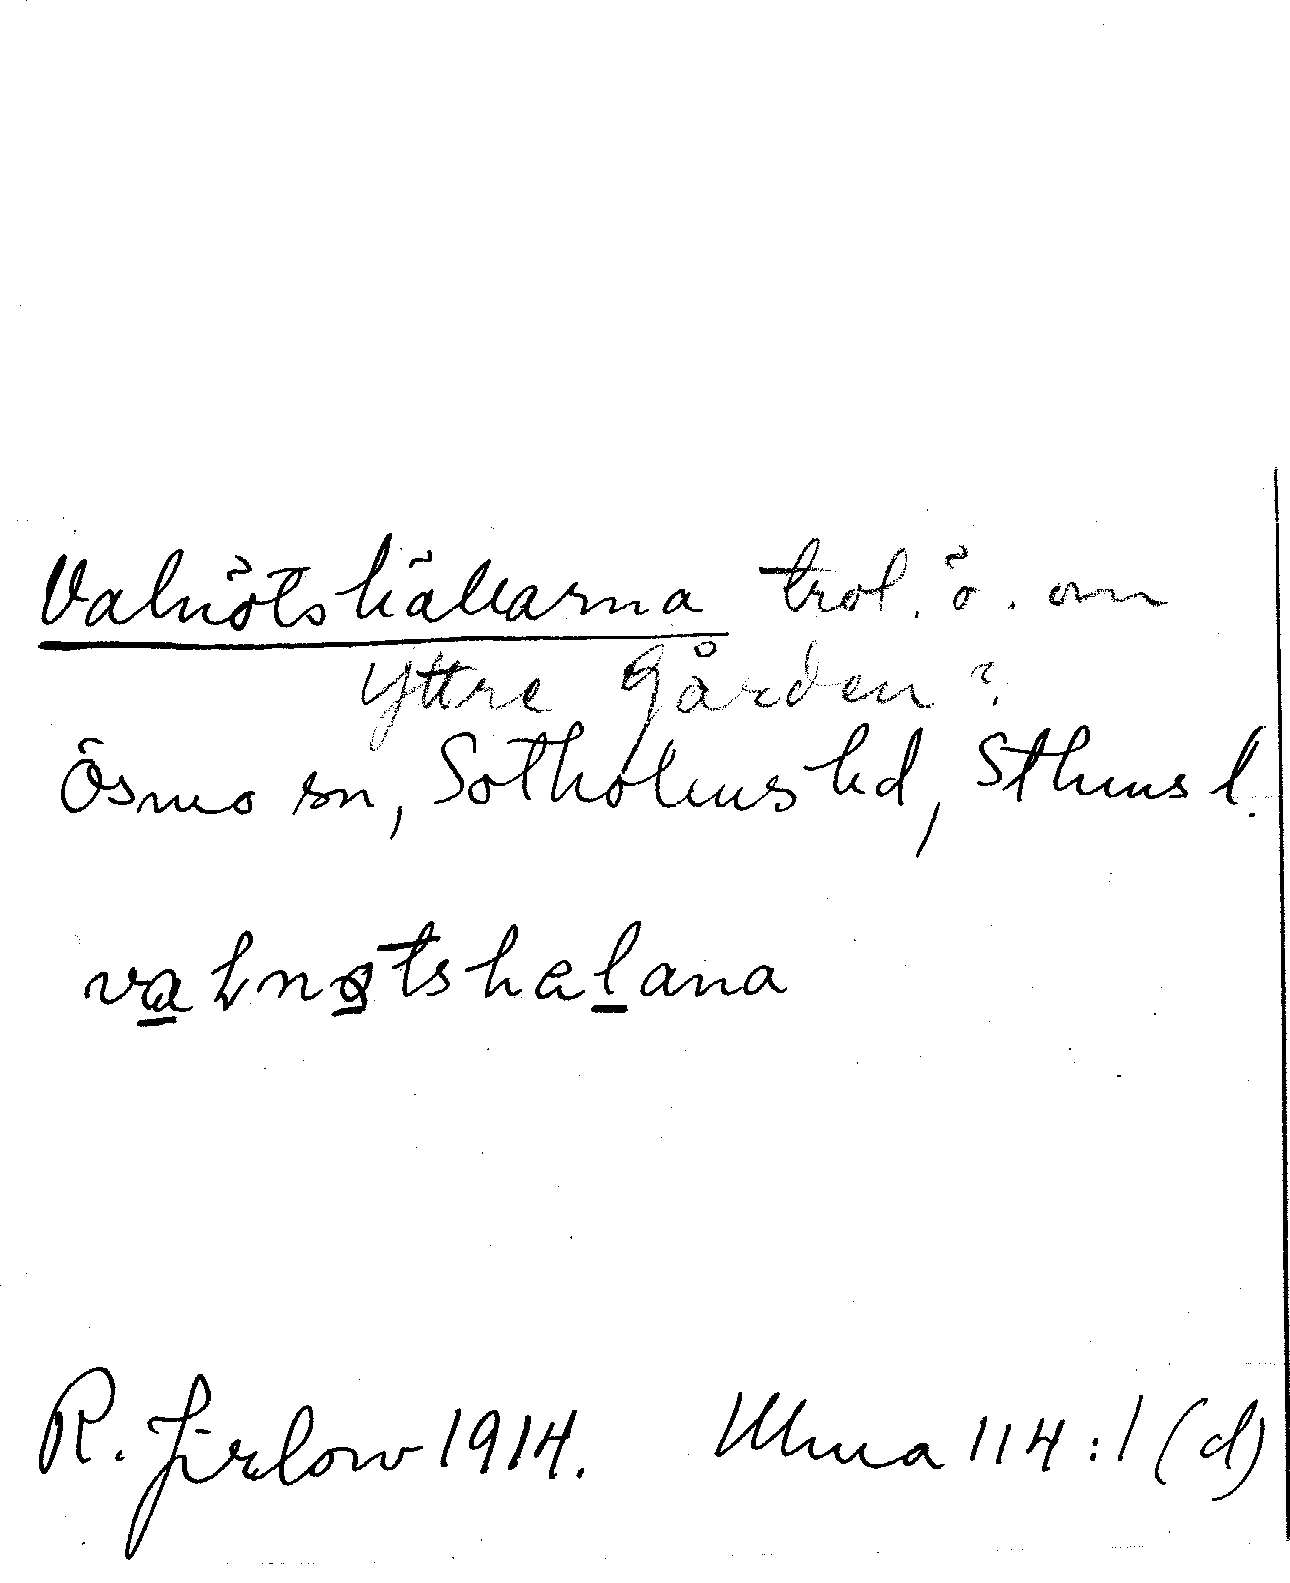 Valnötshällarna trol. ö. om
Yttre gården?
Ösmo sn, Sotholms hd, Sthms l.
valnøtshelana
R. Jirlow 1914. Ulma 114:1 (d)